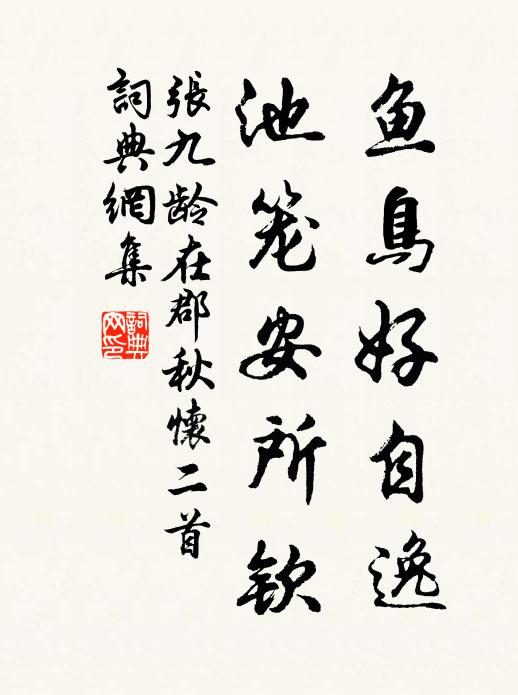 鱼鳥好自逸
池笼安所钦
張九龄在郡秋懷二首
詞典網集
詞典网印